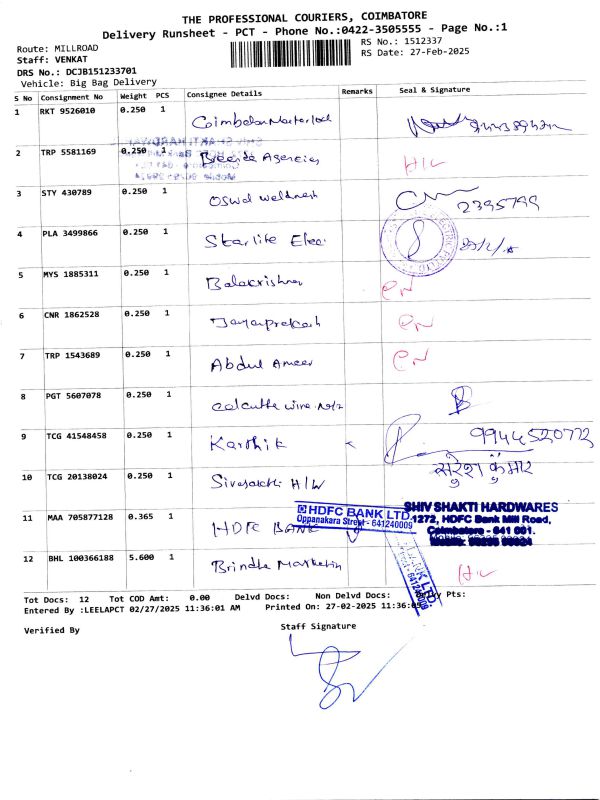 THE PROFESSIONAL COURIERS, COIMBATORE
Delivery Runsheet - PCT - Phone No.:0422-3505555 - Page No.:1
Route: MILLROAD
RS No.: 1512337
Staff: VENKAT
RS Date: 27-Feb-2025
DRS No.: DCJB151233701
Vehicle: Big Bag Delivery
S No Consignment No Weight PCS Consignee Details Remarks Seal & Signature
1 RKT 9526010 0.250 1
2 TRP 5581169 0.250 1 Agencies H/L
3 STY 430789 0.250 1 2395799
4 PLA 3499866 0.250 1 Starlite Elec
5 MYS 1885311 0.250 1 Balakrishna
6 CNR 1862528 0.250 1 Jayaprakash
7 TRP 1543689 0.250 1 Abdul Ameer
8 PGT 5607078 0.250 1 Calcutta wire
9 TCG 41548458 0.250 1 Karthik 9944520772
सुरेश कुमार
10 TCG 20138024 0.250 1 Sivasakthi H/W
SHIV SHAKTI HARDWARES
1272, HDFC Bank Mill Road,
Coimbatore - 641 001.
HDFC BANK LTD.
Oppanakara Street - 641240009
11 MAA 705877128 0.365 1 HDFC BANK
12 BHL 100366188 5.600 1 Brindha Marketin
Tot Docs: 12 Tot COD Amt: 0.00 Delvd Docs: Non Delvd Docs: Pts:
Entered By :LEELAPCT 02/27/2025 11:36:01 AM Printed On: 27-02-2025 11:36:05
Verified By
Staff Signature